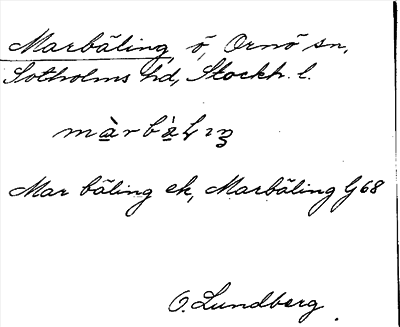 Marbäling, ö, Ornö sn,
Sotholms hd, Stockh. l.
màrbàḷıŋ
Mar bäling ek, Marbäling G68
O. Lundberg.